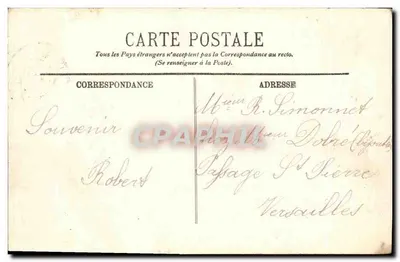 CARTE POSTALE
Tous les Pays étrangers n'acceptent pas la Correspondance au recto.
(Se renseigner à la Poste).
CORRESPONDANCE
ADRESSE
Souvenir
Robert
R. Simonnet
Mr Dobré
Passage St Pierre
Versailles
CPARAMA